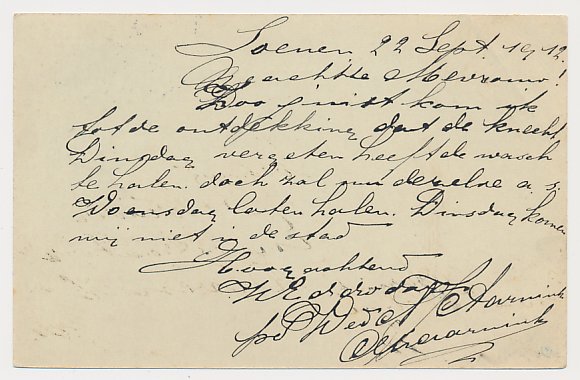 Loenen 22 Sept. 1912.
Geachte Mevrouw!
Zoo juist kom ik
tot de ontdekking dat de knecht
Dinsdag vergeten heeft de wasch
te halen. doch zal nu dezelve a.s.
Woensdag laten halen. Dinsdag komen
wij niet in de stad
Hoogachtend
UEd dw d
p/o Wed